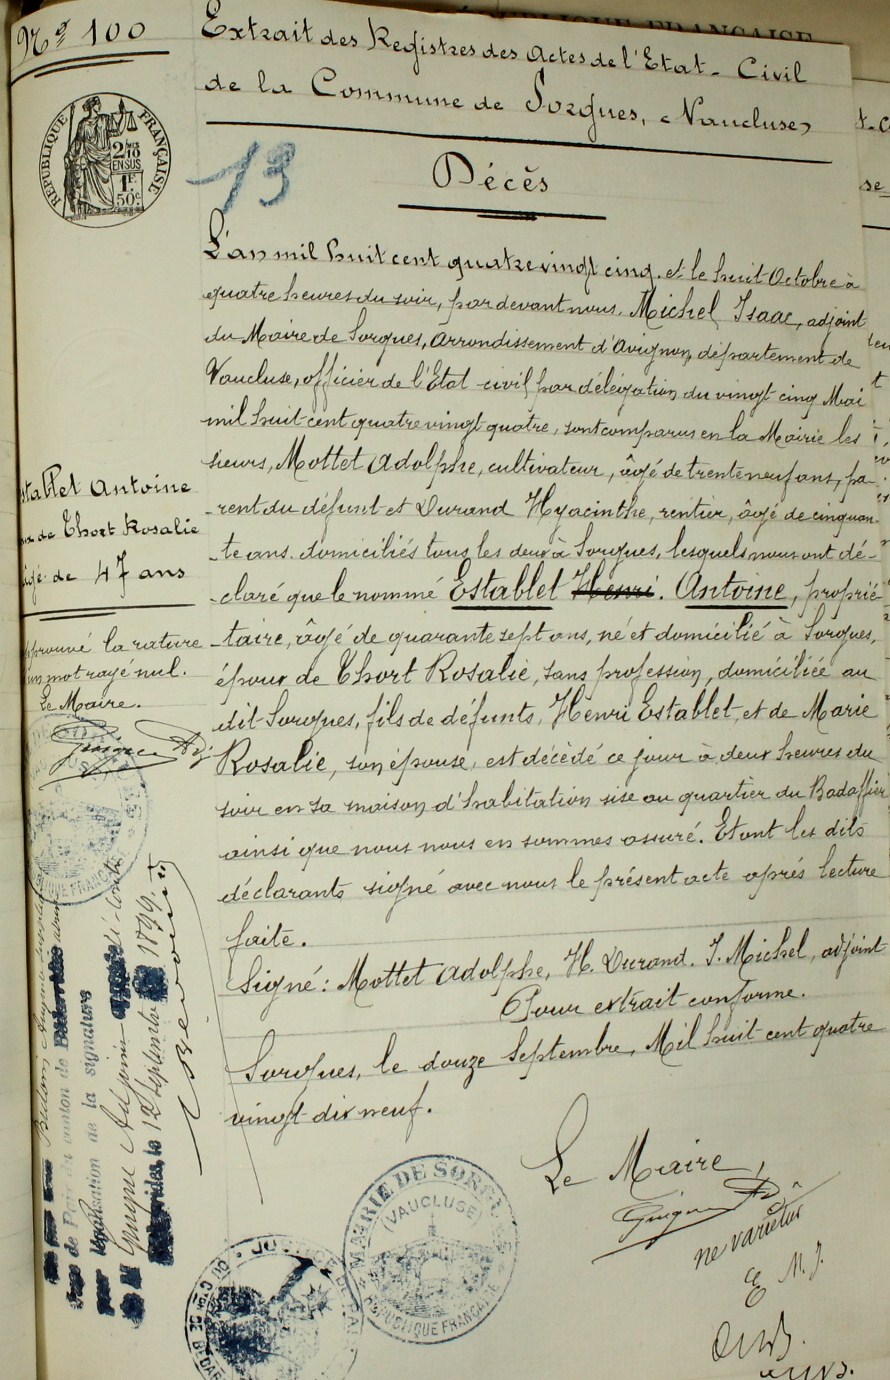 Nº 100
Extrait des Registres des Actes de l'Etat-Civil
de la Commune de Sorgues, (Vaucluse)
RÉPUBLIQUE FRANÇAISE
2/10
EN SUS
1F.
50c.
13
Décès
L'an mil huit cent quatre vingt cinq. et le huit Octobre à
quatre heures du soir, par devant nous, Michel Isaac, adjoint
du Maire de Sorgues, arrondissement d'Avignon, département de
Vaucluse, officier de l'Etat-civil par délégation du vingt cinq Mai
mil huit cent quatre vingt quatre, sont comparus en la Mairie les
sieurs, Mottet Adolphe, cultivateur, âgé de trente neuf ans, pa-
-rent du défunt et Durand Hyacinthe, rentier, âgé de cinquan-
-te ans. domiciliés tous les deux à Sorgues, lesquels nous ont dé-
-claré que le nommé Establet Henri. Antoine, proprié-
-taire, âgé de quarante sept ans, né et domicilié à Sorgues,
époux de Thort Rosalie, sans profession, domiciliée au
dit Sorgues, fils de défunts, Henri Establet, et de Marie
Rosalie, son épouse, est décédé ce jour à deux heures du
soir en sa maison d'habitation sise au quartier du Badaffier
ainsi que nous nous en sommes assuré. Et ont les dits
déclarants signé avec nous le présent acte après lecture
faite.
Signé: Mottet Adolphe, H. Durand. I. Michel, adjoint
Pour extrait conforme.
Sorgues, le douze Septembre, Mil huit cent quatre
vingt dix neuf.
Le Maire,
ne varietur
E M. J.
stablet Antoine
de Thort Rosalie
âgé de 47 ans
pprouvé la rature
un mot rayé nul.
Le Maire.
Juge de Paix du canton de
pour légalisation de la signature
de M Guigue Adjoint
le 12 Septembre 1899.
MAIRIE DE SORGUES
(VAUCLUSE)
RÉPUBLIQUE FRANÇAISE